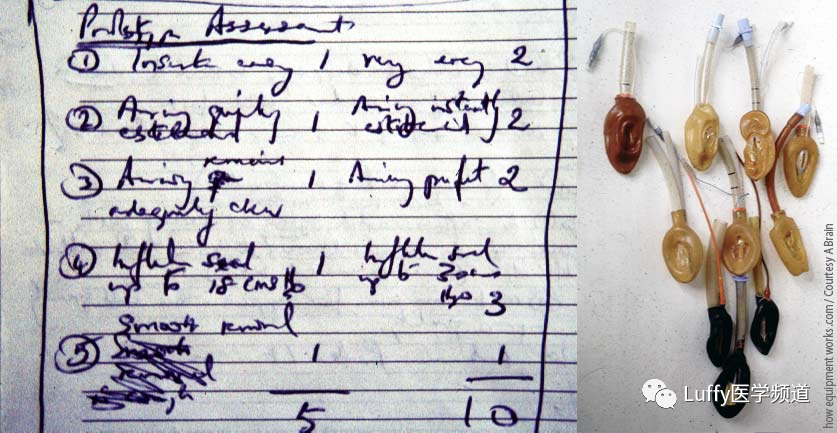 Prototype Assessment
① Insertion easy 1 very easy 2
② Airway quickly established 1 Airway instantly established 2
③ Airway remains adequately clear 1 Airway perfect 2
④ Inflation seal up to 18 cms H₂O 1 Inflation seal up to 30 cms H₂O 3
Smooth removal
⑤ 1 1
5 10
Luffy医学频道
how equipment works.com / Courtesy A Brain